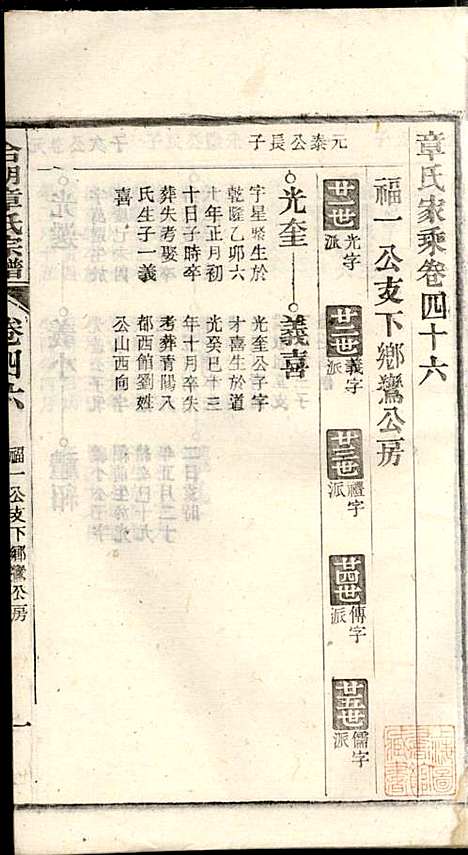 章氏家乘卷四十六
福一公支下鄉鸞公房
廿一世 光字派
廿二世 義字派
廿三世 禮字派
廿四世 傳字派
廿五世 儒字派
元泰公長子
光奎
字星聚生於
乾隆乙卯六
十年正月初
十日子時卒
葬失考娶
氏生子一義
喜
義喜
光奎公子字
才喜生於道
光癸巳十三
年十月卒失
考葬青陽入
都西館劉姓
公山西向
章氏宗譜
卷四六
福一公支下鄉鸞公房
一